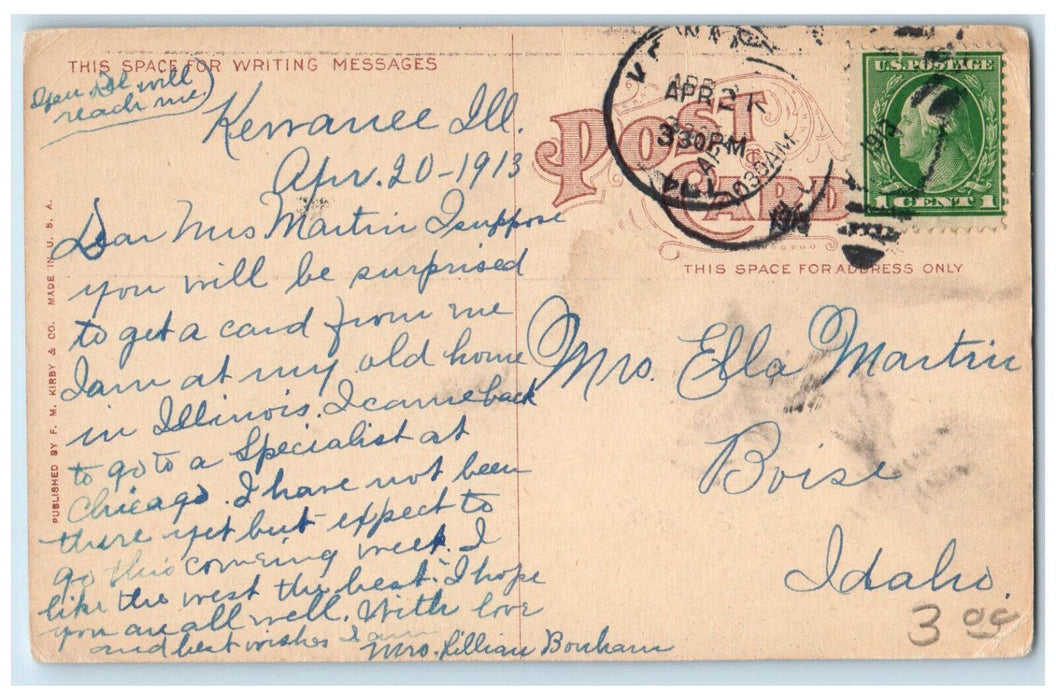 THIS SPACE FOR WRITING MESSAGES
will
reach me.)
Kewanee Ill.
Apr. 20-1913
Dear Mrs Martin I suppose
you will be surprised
to get a card from me
I am at my old home
in Illinois. I came back
to go to a Specialist at
Chicago. I have not been
there yet but expect to
go this comeing week. I
like the west the best. I hope
you are all well. With love
and best wishes I am
Mrs. Lillian Bonham
PUBLISHED BY F. M. KIRBY & CO. MADE IN U. S. A.
POST
CARD
THIS SPACE FOR ADDRESS ONLY
APR 21
330PM
ILL.
1030AM
1913
U.S. POSTAGE
1 CENT 1
Mrs. Ella Martin
Boise
Idaho.
3 00